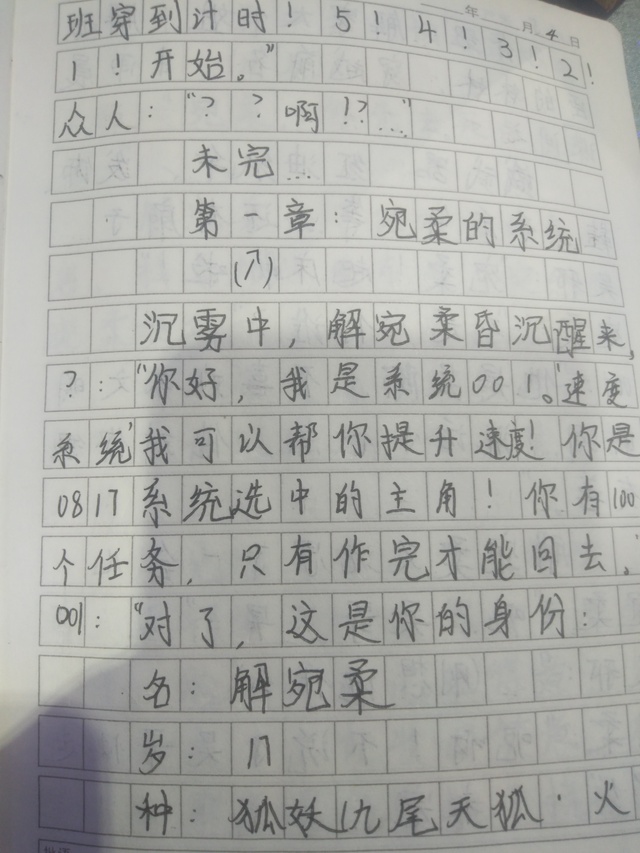 年 月 4 日
班穿到计时！5！4！3！2！
1！开始。”
众人：“？？啊！？…”
未完…
第一章：宛柔的系统
(↗)
沉雾中，解宛柔昏沉醒来，
？：“你好，我是系统001。‘速度
系统’我可以帮你提升速度！你是
0817系统选中的主角！你有100
个任务，只有作完才能回去。”
001：“对了，这是你的身份：
名：解宛柔
岁：17
种：狐妖(九尾天狐·火